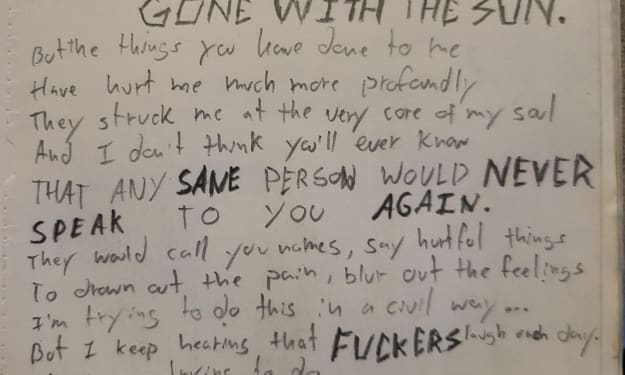 GONE WITH THE SUN.
But the things you have done to me
Have hurt me much more profoundly
They struck me at the very core of my soul
And I don't think you'll ever know
THAT ANY SANE PERSON WOULD NEVER
SPEAK TO YOU AGAIN.
They would call you names, say hurtful things
To drown out the pain, blur out the feelings
I'm trying to do this in a civil way...
But I keep hearing that FUCKERS laugh each day.
trying to do